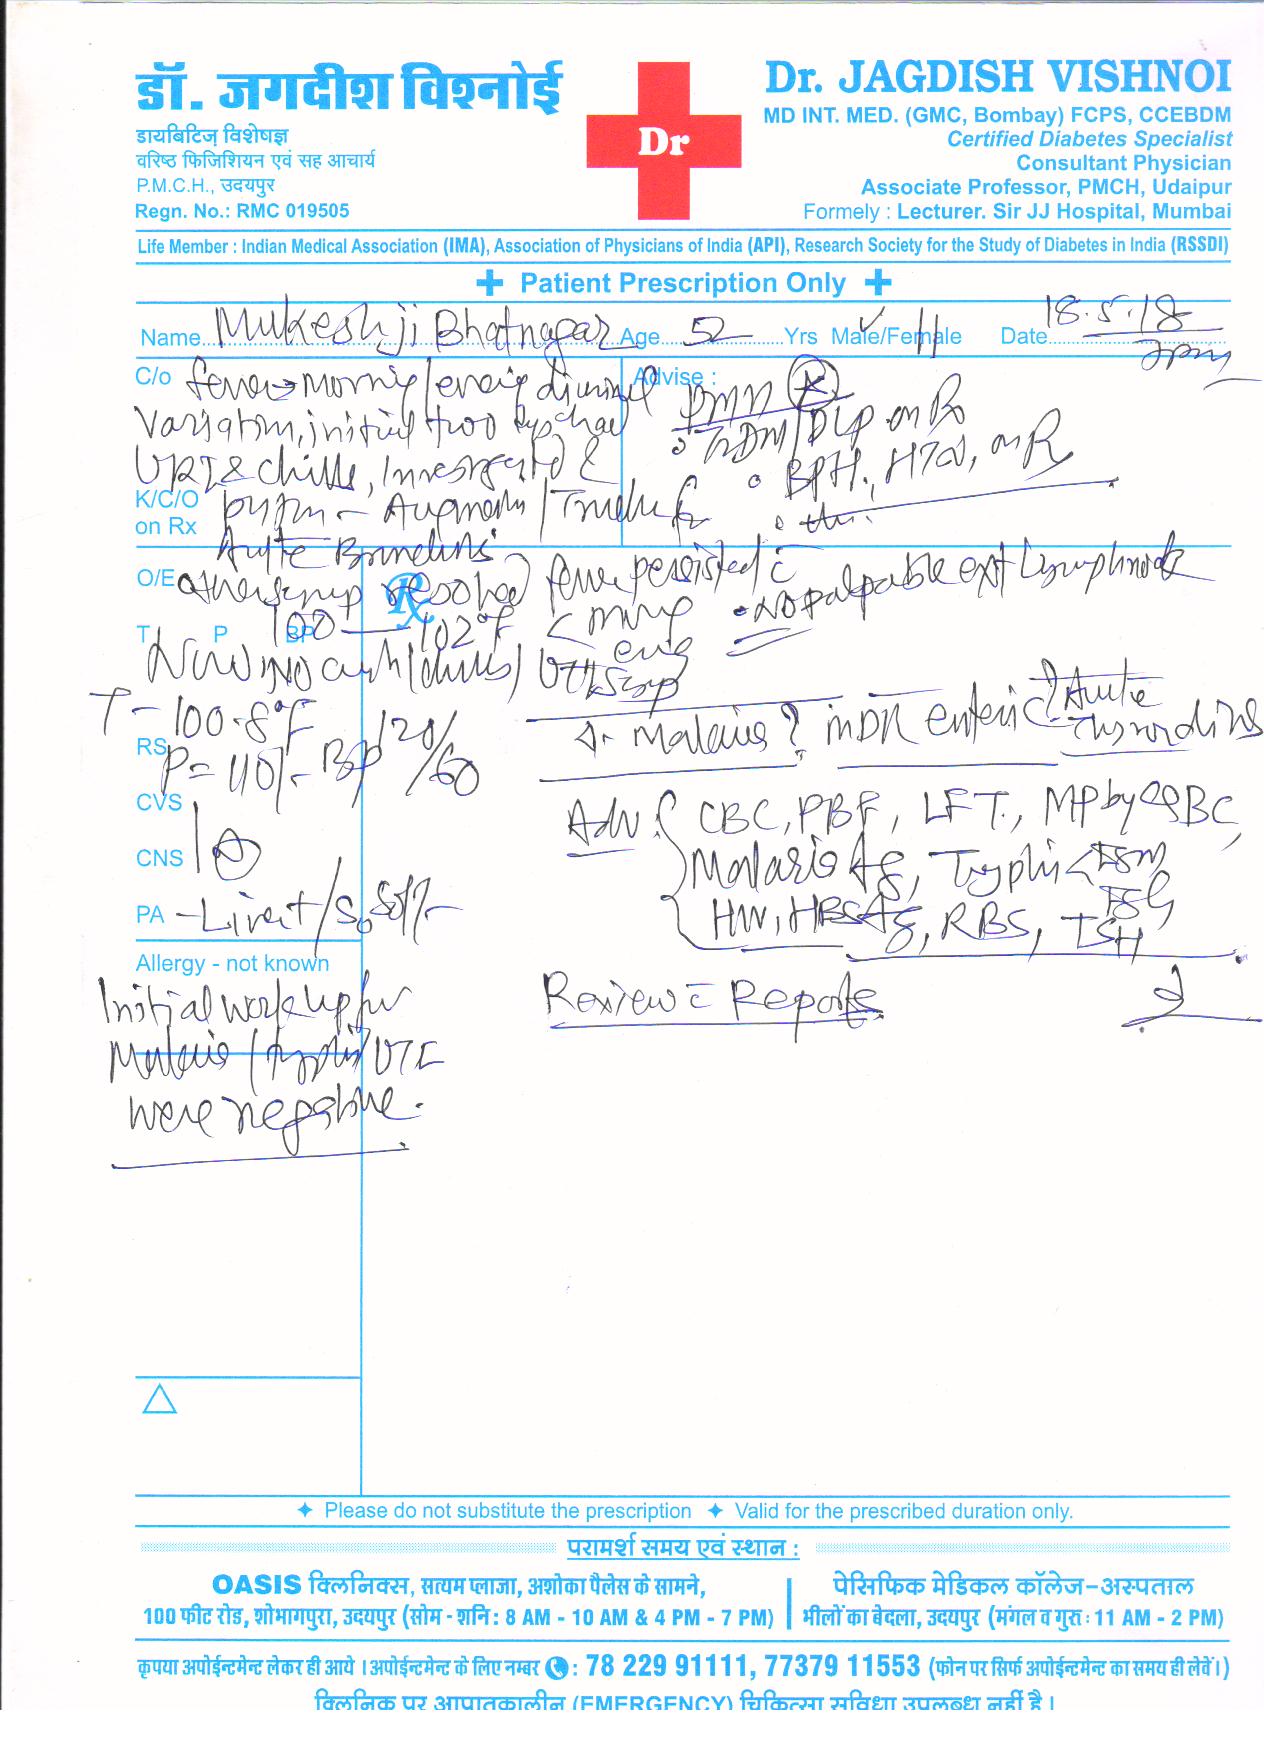 डॉ. जगदीश विश्नोई
डायबिटिज़ विशेषज्ञ
वरिष्ठ फिजिशियन एवं सह आचार्य
P.M.C.H., उदयपुर
Regn. No.: RMC 019505
Dr
Dr. JAGDISH VISHNOI
MD INT. MED. (GMC, Bombay) FCPS, CCEBDM
Certified Diabetes Specialist
Consultant Physician
Associate Professor, PMCH, Udaipur
Formely : Lecturer. Sir JJ Hospital, Mumbai
Life Member : Indian Medical Association (IMA), Association of Physicians of India (API), Research Society for the Study of Diabetes in India (RSSDI)
+ Patient Prescription Only +
Name Mukeshji Bhatnagar Age 52 Yrs Male/Female Date 18.5.18
C/o fever morning/evening diurnal
variation, initial two
URTI & chills, Investigated &
K/C/O
on Rx
Augmentin
Acute
Advise :
T2DM/DLP on Rx
BPH, HTN, on Rx
O/E resolved fever persisted
100 — 102°F
T P BP
No palpable ext Lymphnode
Now no cough/chills/
T - 100.8°F
RS
P = 110/- BP 120/60
CVS
CNS
PA - Liver+/So, Soft/-
Malaria? MDR enteric? Acute
Adv: CBC, PBF, LFT, MP by QBC,
Malaria Ag, Typhi
HIV, HBSAg, RBS, TSH
IgM
IgG
Review c Reports
Allergy - not known
Initial workup for
Malaria/Typhi/UTI
were negative.
Please do not substitute the prescription Valid for the prescribed duration only.
परामर्श समय एवं स्थान :
OASIS क्लिनिक्स, सत्यम प्लाजा, अशोका पैलेस के सामने,
100 फीट रोड, शोभागपुरा, उदयपुर (सोम - शनि : 8 AM - 10 AM & 4 PM - 7 PM)
पेसिफिक मेडिकल कॉलेज-अस्पताल
भीलों का बेदला, उदयपुर (मंगल व गुरु : 11 AM - 2 PM)
कृपया अपोईन्टमेन्ट लेकर ही आये । अपोईन्टमेन्ट के लिए नम्बर : 78 229 91111, 77379 11553 (फोन पर सिर्फ अपोईन्टमेन्ट का समय ही लेवें।)
क्लिनिक पर आपातकालीन (EMERGENCY) चिकित्सा सुविधा उपलब्ध नहीं है ।